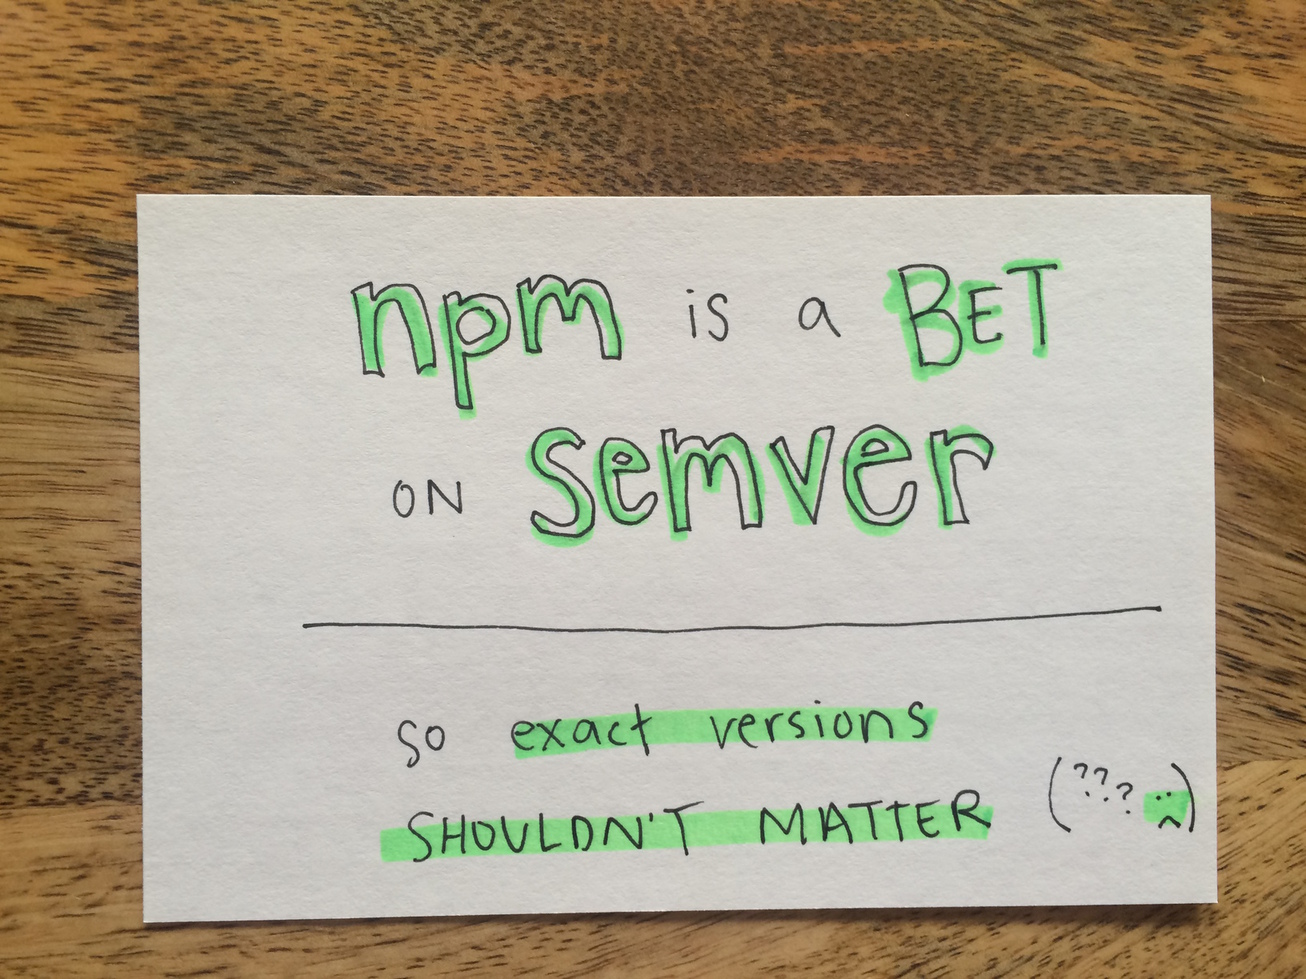 npm is a BET
ON semver
so exact versions
SHOULDN'T MATTER (??? :()